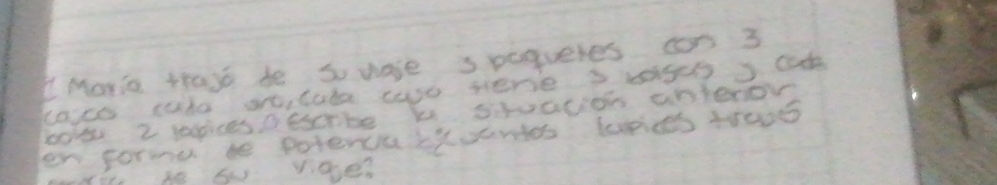 I Maria trajó de su viaje 3 paquetes con 3
cajas cada uno, cada caja tiene 3 bolsas y cada
bolsa 2 lapices Describe la situación anterior
en forma de potencia ¿Cuantos lapices trajo
de su viaje?